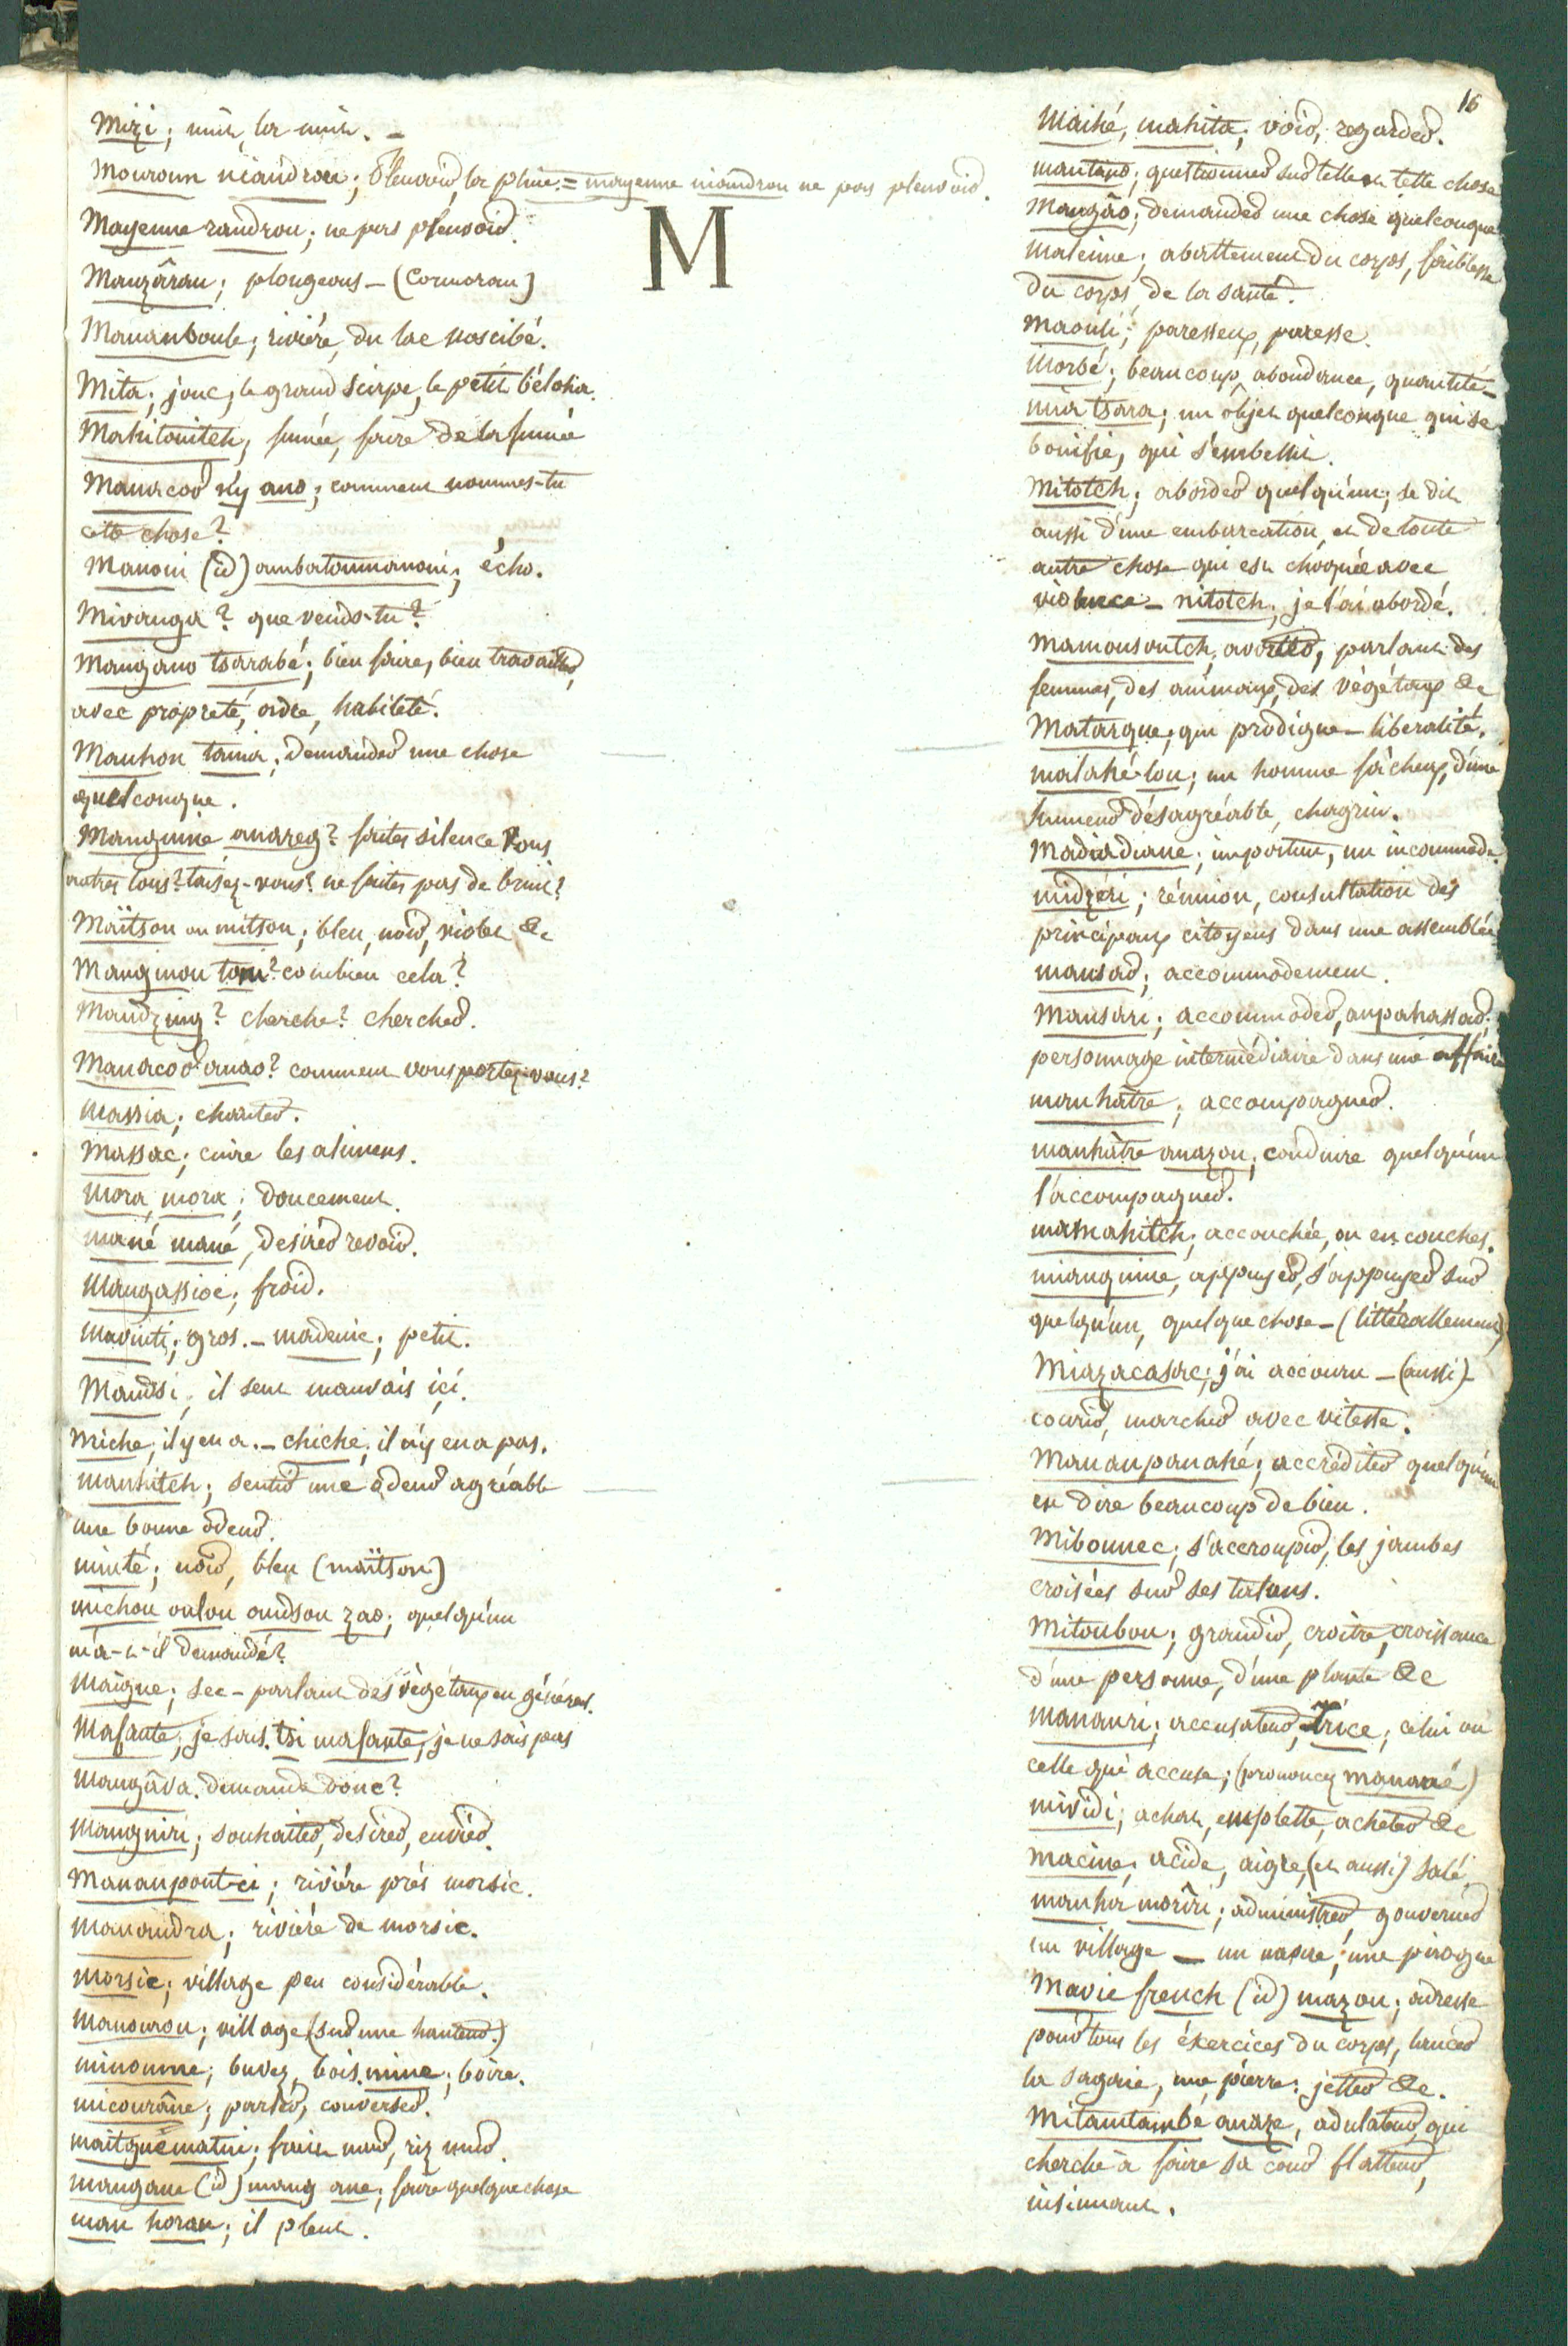 16
M
Mizi; nuit, la nuit. –
Mouroun niandrou; Pleuvoir, la pluie = mayenne niandrou ne pas pleuvoir.
Mayenne randrou; ne pas pleuvoir.
Manzârau; plongeons – (Cormoran)
Mananboule; riviére, du lac nossibé.
Mita; jonc, le grand scirpe, le petit béloha.
Mahitonitch, fumée, faire de la fumée
Manacoor ny ano; comment nommes-tu
cette chose?
Manoni (id) ambatoumanoni; écho.
Mivanga? que vends-tu?
Mangano tsarabé; bien faire, bien travailler,
avec propreté, ordre, habileté.
Manhon tania; demander une chose
quelconque.
Manguine anareg? faites silence Vous
autres tous? taisez-vous? ne faites pas de bruit?
Maïtson ou mitson; bleu, noir, violet &c
Manginou toni? combien cela?
Mandzing? cherche? chercher.
Manacoor anao? comment vous portez-vous?
Massia; chanter.
Massac; cuire les alimens.
Mora, mora; doucement.
mané mané, desirer revoir.
Mangassioc; froid.
Mavinti; gros. – madenic; petit.
Mandsi; il sent mauvais içi.
Miche; il y en a. – chiche; il n'y en a pas.
manhitch; sentir une odeur agréable
une bonne odeur.
minté; noir, bleu (maïtson)
michou oulou oudson zao; quelqu'un
m'a-t-il demandé?
Maïgne; sec – parlant des végétaux en général.
Mafante; je sais. tsi mafante, je ne sais pas
Mangâva. demande donc?
Mangniri; souhaiter, desirer, envier.
Mananpont-ci; riviére prés morsic.
Manandra; riviére de morsic.
Morsic; village peu considérable.
Manourou; village (sur une hauteur.)
minoume; buvez, bois. mine; boire.
micourâne; parler, converser.
maitguématni; fruit mur, riz mur.
mangane (id) mang ane; faire quelque chose
man horan; il pleut.
Maihé, mahita; voir, regarder.
mantano; questionner sur telle ou telle chose
Mangâo; demander une chose quelconque
Maleinne; abattement du corps, faiblesse
du corps, de la santé.
Maouli; paresseux, paresse.
Morbé; beaucoup, abondance, quantité –
mia tsara; un objet quelconque qui se
bonifie, qui s'embelli.
Mitotch; aborder quelqu'un; se dit
aussi d'une embarcation, et de toute
autre chose qui est choquée avec
violence – nitotch; je l'ai abordé.
Mamousoutch, avorter, parlant des
femmes, des animaux, des végétaux &c
Matarque; qui prodigue – libéralité.
malahé-lou; un homme fâcheux, d'une
humeur désagréable, chagrin.
Madiadiane; importun, un incommode.
midzéri; réunion, consultation des
principaux citoyens dans une assemblée
mansar; accommodement.
Mansari; accommoder, anpahassar;
personnage intermédiaire dans une affaire
manhâtre; accompagner.
manhâtre anazou; conduire quelqu'un
l'accompagner.
mamahitch; accouchée, ou en couches.
mianguine, appuyer, s'appuyer sur
quelqu'un, quelque chose – (littéralement)
Miazacasac; j'ai accouru – (aussi)
courir, marcher avec vitesse.
Mananpanahé; accréditer quelqu'un
en dire beaucoup de bien.
Mibounec; s'accroupir, les jambes
croisées sur ses talons.
Mitoubou; grandir, croître, croissance
d'une personne, d'une plante &c
Mananri; accusateur, trice; celui ou
celle qui accuse; (prononcez mananré)
mividi; achat, emplette, acheter &c
macine; acide, aigre, (et aussi) salé.
manha morîri; administrer, gouverner
un village – un navire, une pirogue
Mavie french (id) mazou; adresse
pour tous les éxercices du corps, lancer
la sagaie, une pierre: jetter &c.
Mitamtambé anaze, adulateur, qui
cherche à faire sa cour, flatteur,
insinuant.